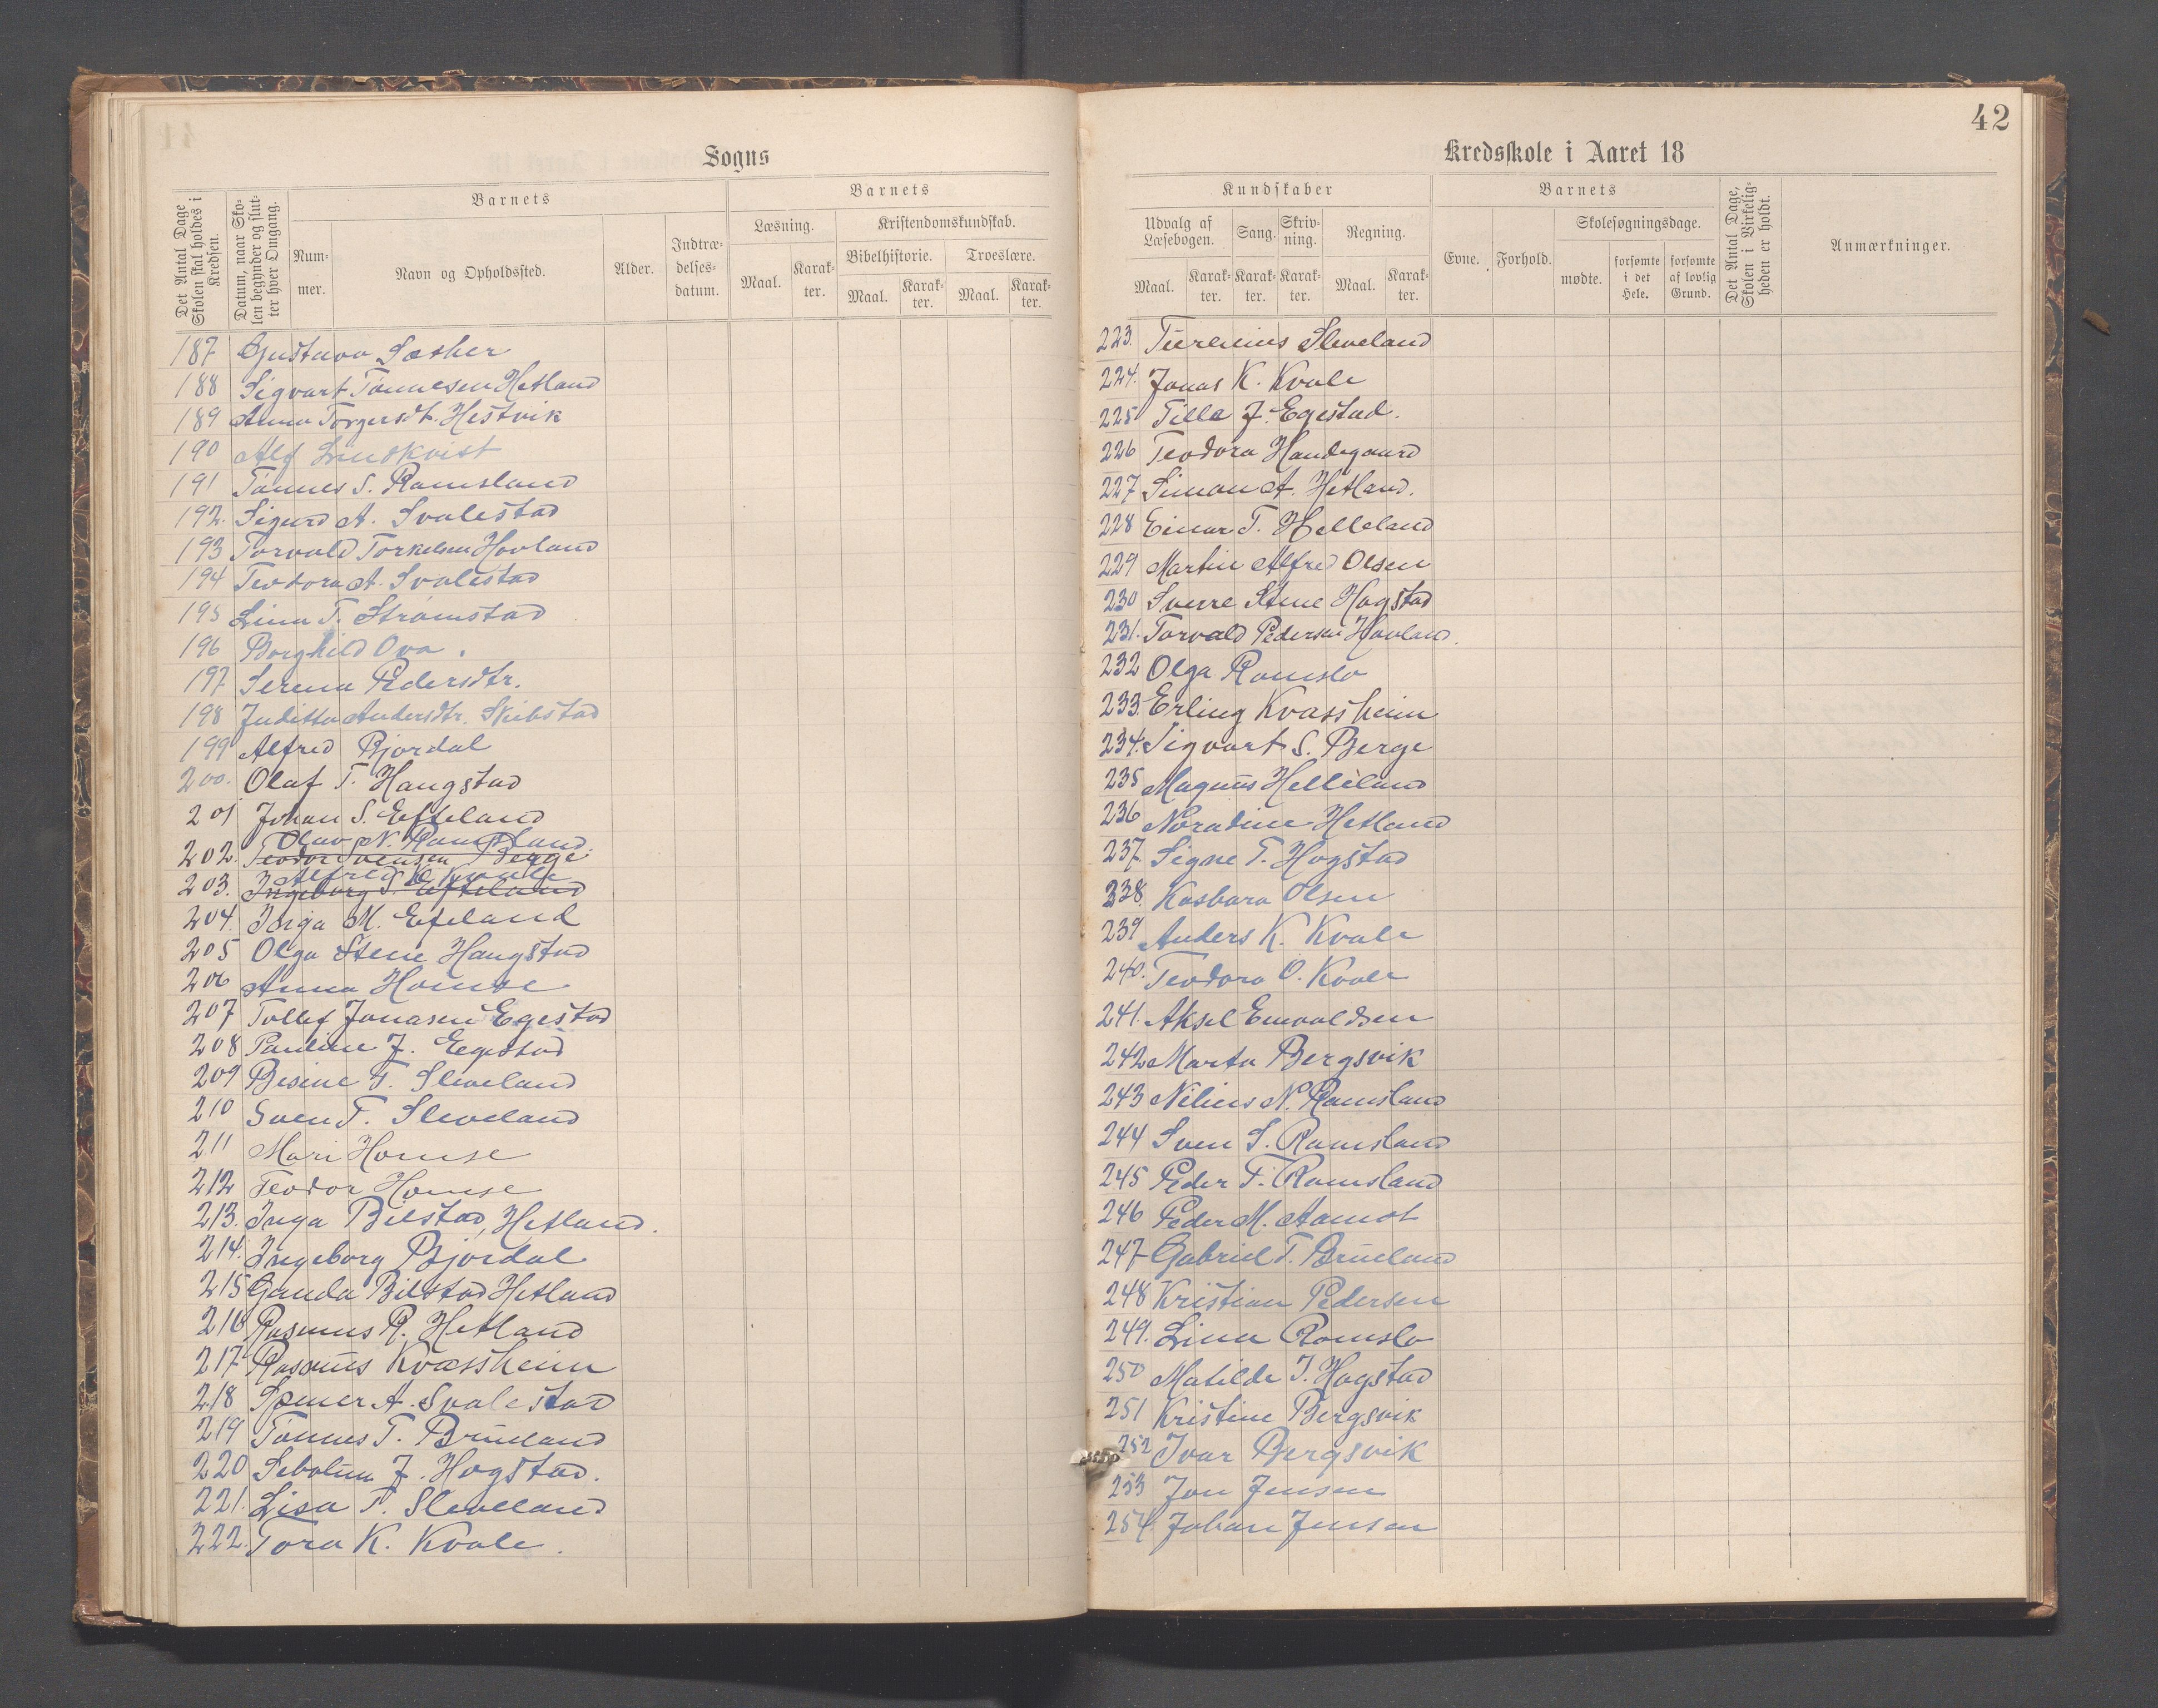 42
Sogns
Kredsskole i Aaret 18
Det Antal Dage Skolen skal holdes i Kredsen.
Datum, naar Skolen begynder og slutter hver Omgang.
Barnets
Nummer.
Navn og Opholdssted.
Alder.
Indtrædelsesdatum.
Barnets
Læsning.
Maal.
Karakter.
Kristendomskundskab.
Bibelhistorie.
Maal.
Karakter.
Troeslære.
Maal.
Karakter.
Kundskaber
Udvalg af Læsebogen.
Maal.
Karakter.
Sang.
Karakter.
Skrivning.
Karakter.
Regning.
Maal.
Karakter.
Barnets
Evne.
Forhold.
Skolesøgningsdage.
mødte.
forsømte i det Hele.
forsømte af lovlig Grund.
Det Antal Dage, Skolen i Virkeligheden er holdt.
Anmærkninger.
187 Gustava Sæther
188 Sigvart Tønnesen Hetland
189 Anna Torgersdt. Hestvik
190 Alf Lindkvist
191 Tønnes S. Ramsland
192. Sigurd A. Svalestad
193 Torvald Torkelsen Hovland
194 Teodora A. Svalestad
195 Lina T. Strømstad
196 Borghild Ova.
197 Serena Pedersdtr.
198 Juditta Andersdtr. Skibstad
199 Alfred Bjordal
200. Olaf T. Haugstad
201 Johan S. Efteland
Olav N. Ramsland
202. Teodor Svensen Berge
Alfred K. Kvale
203. Ingeborg S. Efteland
204. Inga M. Efteland
205 Olga Stene Haugstad
206 Anna Homse
207 Tollef Jonasen Egestad
208 Pauline J. Egestad
209 Besine T. Sleveland
210 Sven T. Sleveland
211 Mari Homse
212 Teodor Homse
213. Inga Bilstad, Hetland.
214. Ingeborg Bjordal
215 Gunda Bilstad Hetland
216 Rasmus R. Hetland
217 Rasmus Kvassheim
218 A. Svalestad
219 Tønnes T. Brueland
220 J. Hogstad.
221. Lisa T. Sleveland
222. Tora K. Kvale.
223. Sleveland
224. Jonas K. Kvale
225 Tilla J. Egestad.
226 Teodora Haadegaard
227 Simon A. Hetland.
228 Einar T. Helleland
229 Martin Alfred Olsen
230 Sverre Stene Hogstad
231. Torvald Pedersen Hovland.
232 Olga Romslo
233. Erling Kvassheim
234. Sigvart S. Berge
235 Magnus Helleland
236 Noradine Hetland
237. Signe T. Hogstad
238. Kasbara Olsen
239 Anders K. Kvale
240. Teodora O. Kvale
241. Aksel Envaldsen
242 Marta Bergsvik
243 Nilius N. Ramsland
244 Sven S. Ramsland
245 Peder T. Ramsland
246 Peder M. Aamot
247 Gabriel T. Brueland
248 Kristian Pedersen
249. Lina Romslo
250 Matilde J. Hogstad
251 Kristine Bergsvik
252 Ivar Bergsvik
253 Jon Jensen
254. Johan Jensen